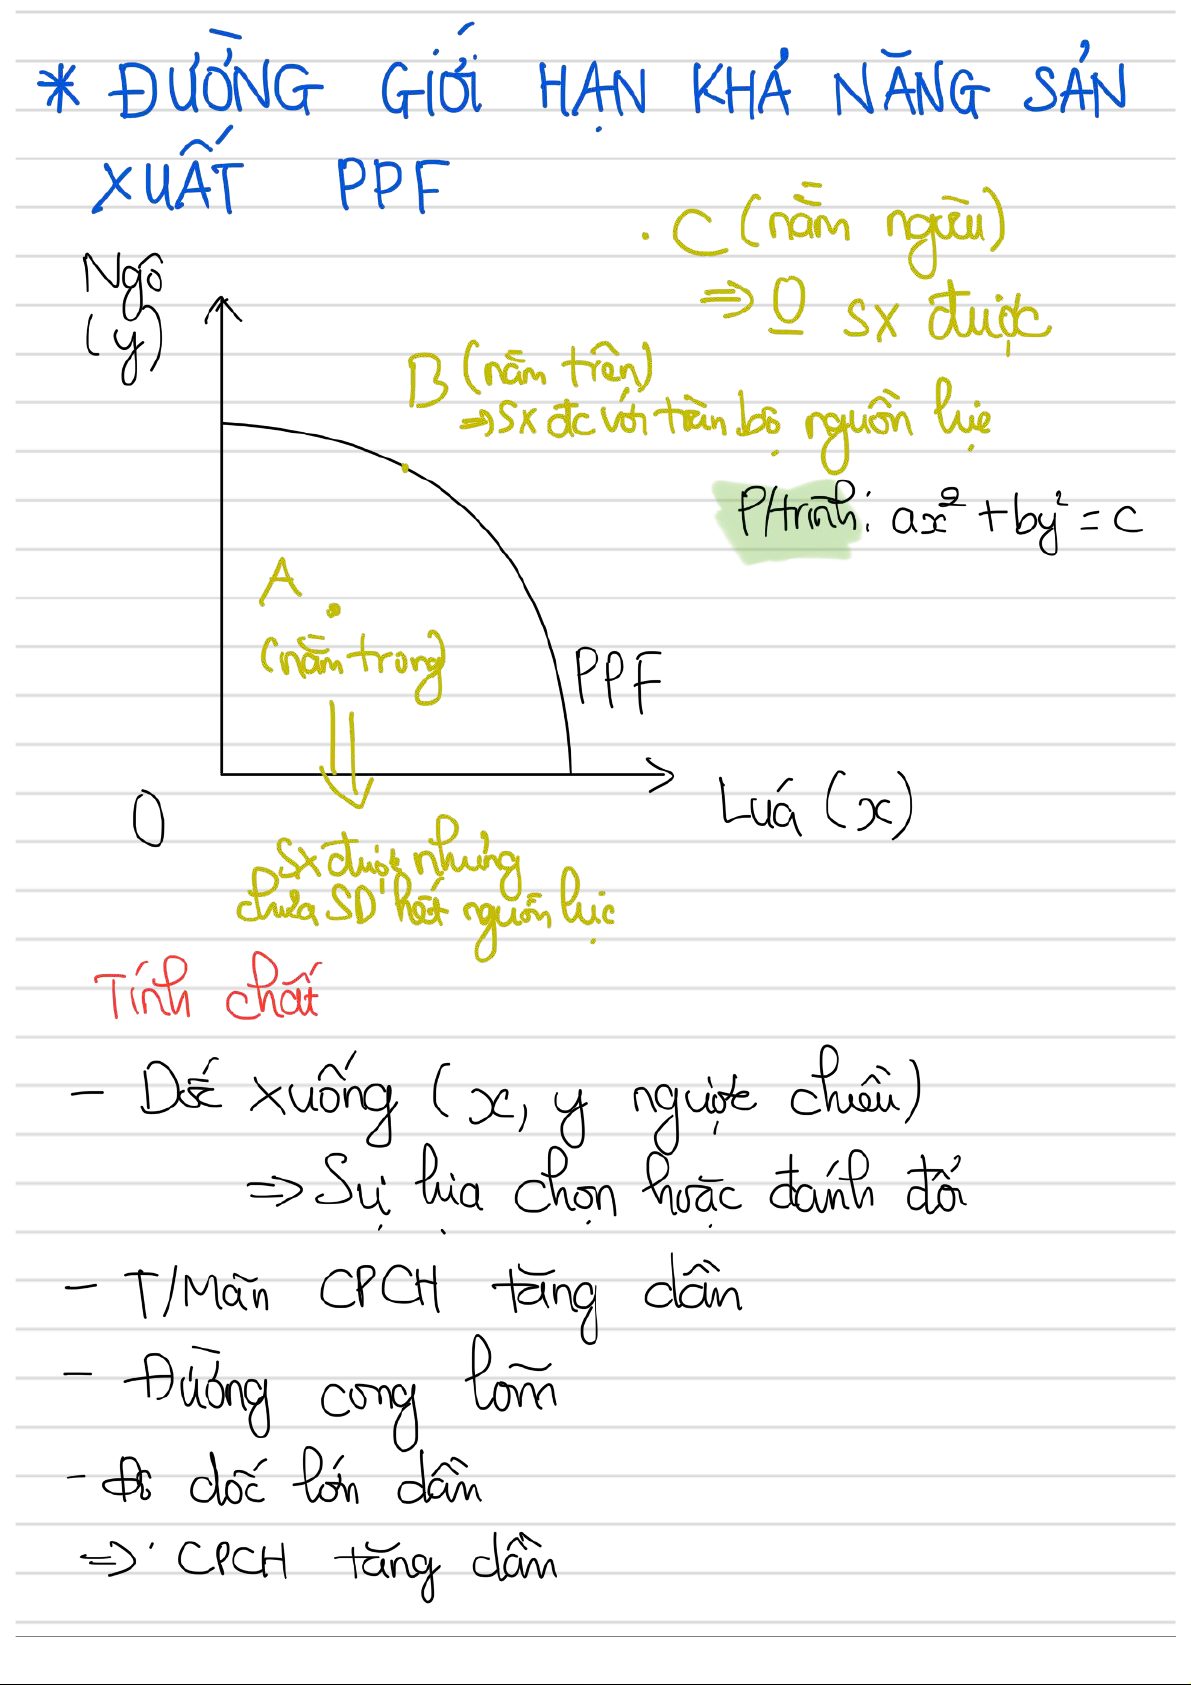 * ĐƯỜNG GIỚI HẠN KHẢ NĂNG SẢN
XUẤT PPF
. C (nằm ngoài)
⇒ O sx được
Ngô
(y)
B (nằm trên)
⇒ sx đc với toàn bộ nguồn lực
P/trình: ax² + by² = c
A
(nằm trong)
PPF
O
Lúa (x)
SX được nhưng
chưa SD hết nguồn lực
Tính chất
- Dốc xuống (x, y ngược chiều)
⇒ Sự lựa chọn hoặc đánh đổi
- T/Mãn CPCH tăng dần
- Đường cong lõm
- Độ dốc lớn dần
⇒ CPCH tăng dần